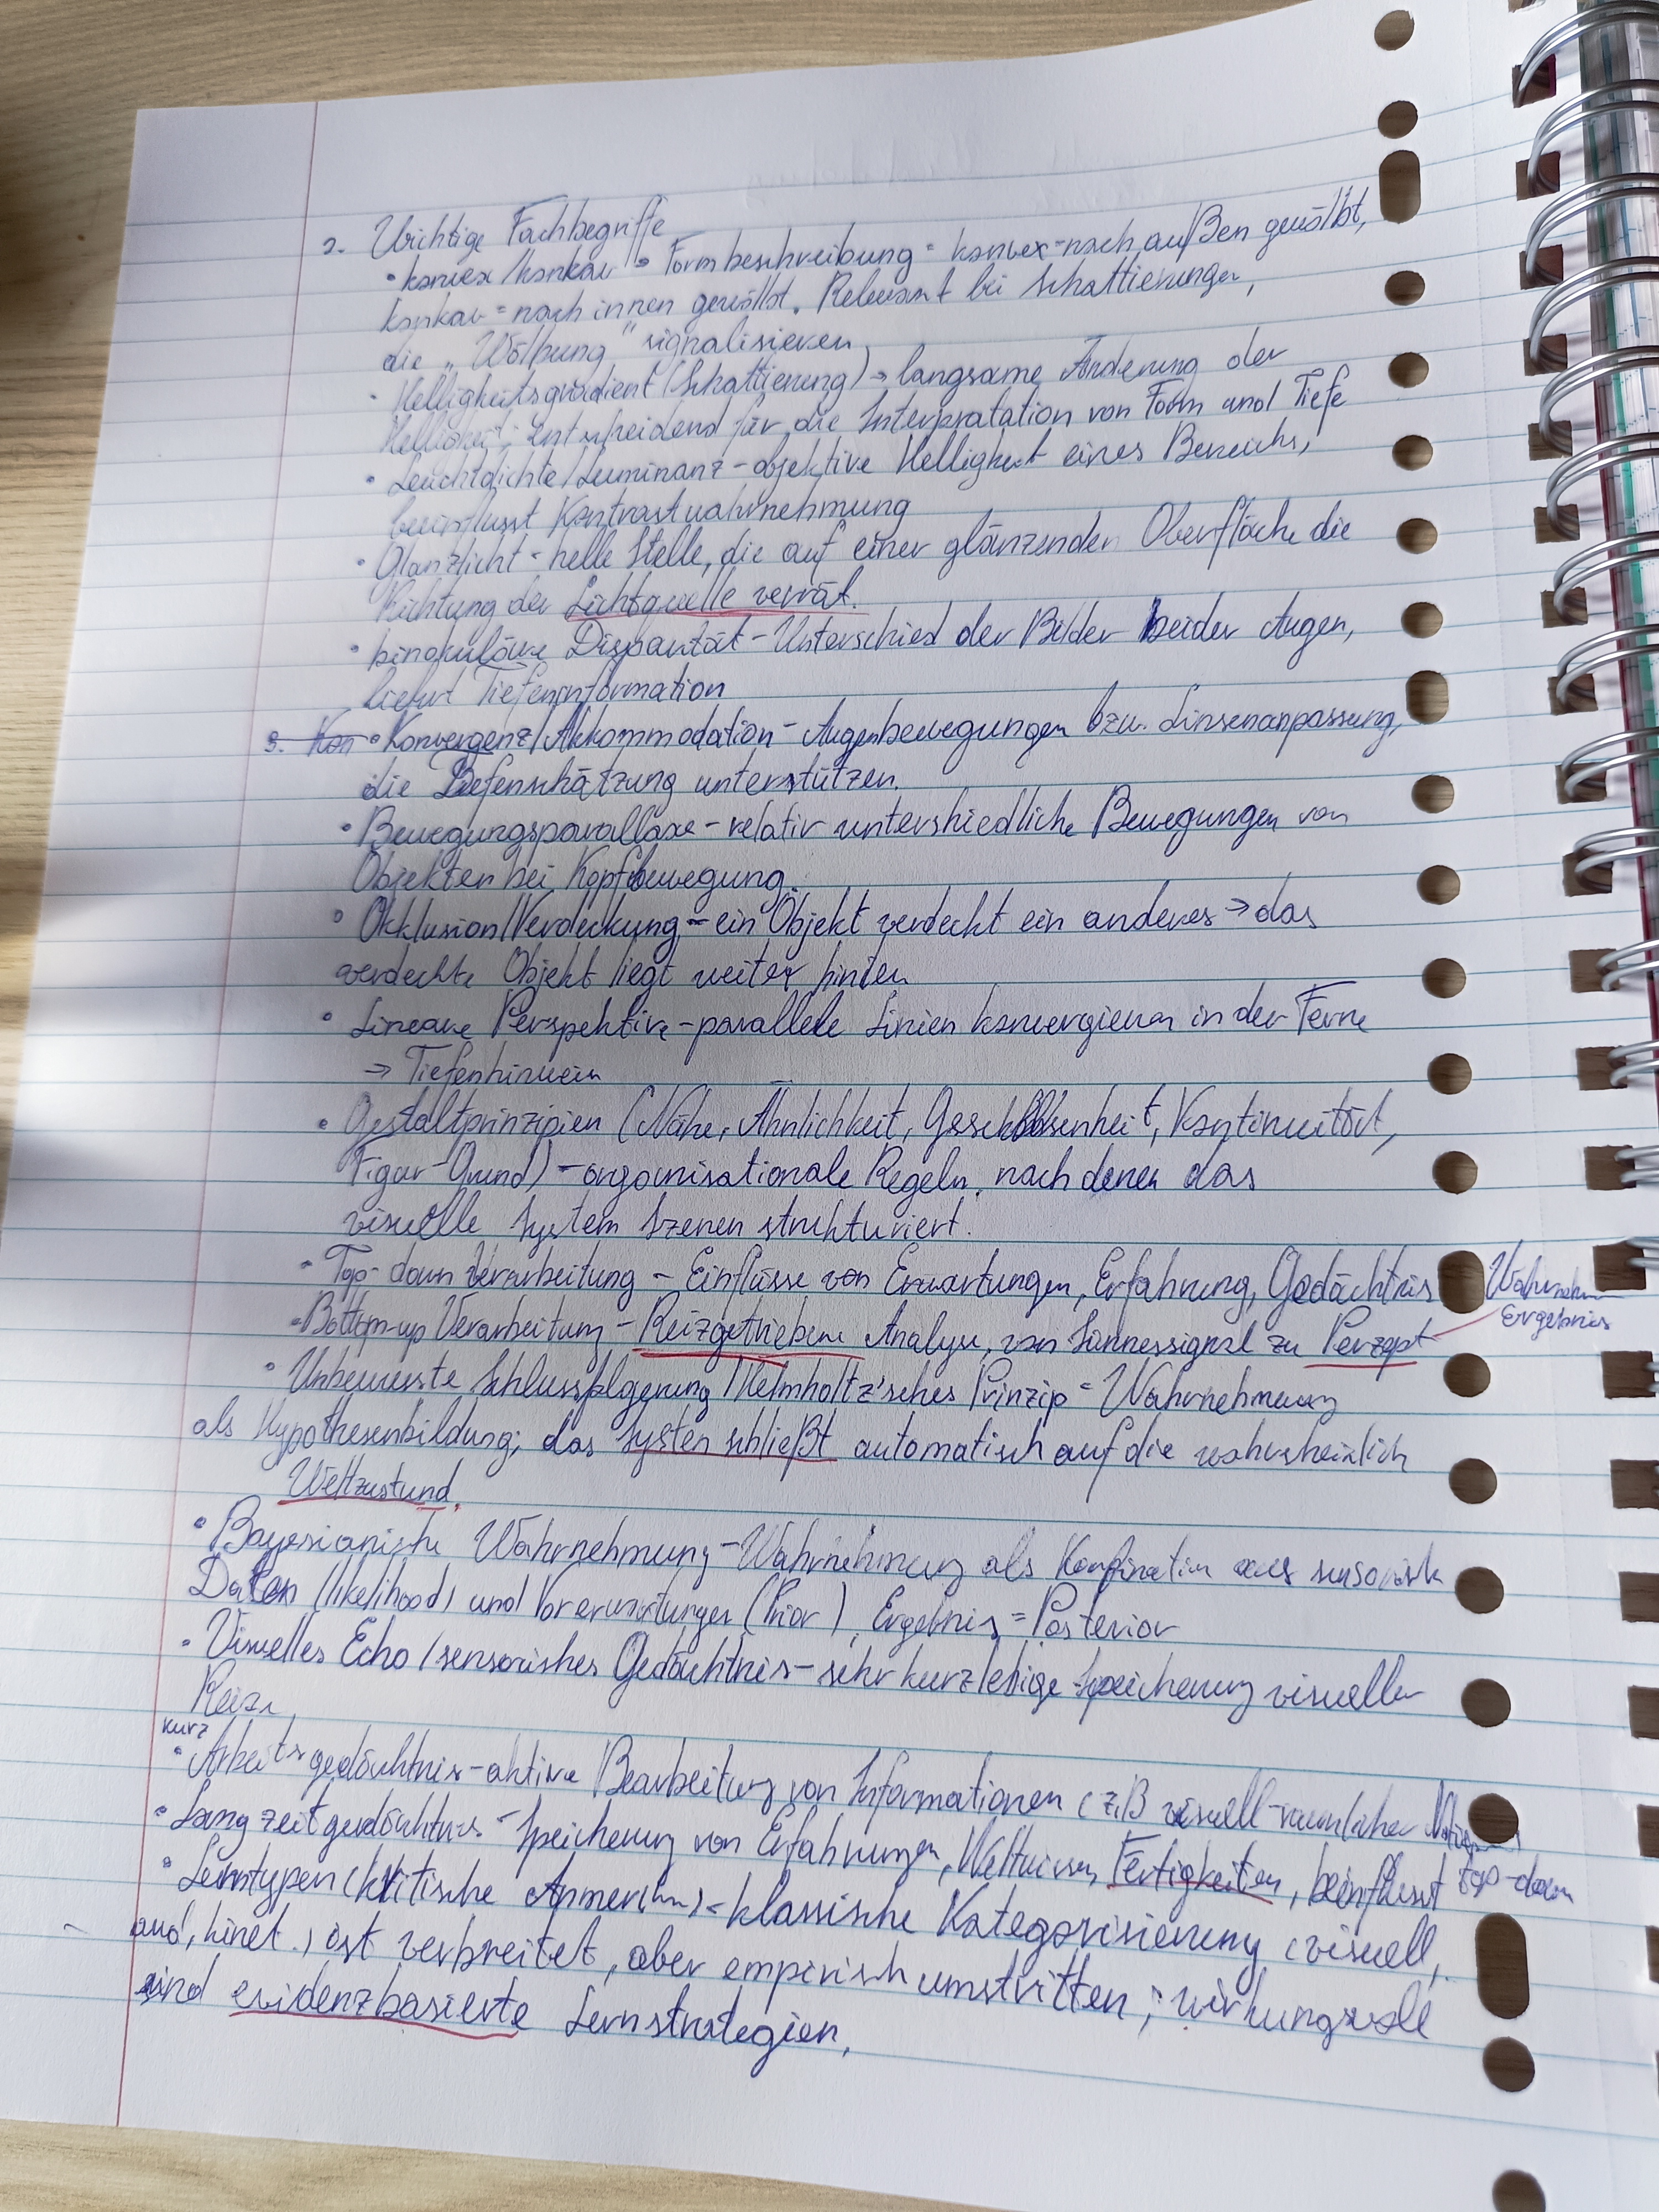 2. Wichtige Fachbegriffe
• konvex/konkav → Formbeschreibung = konvex = nach außen gewölbt,
konkav = nach innen gewölbt. Relevant bei Schattierungen,
die „Wölbung" signalisieren
• Helligkeitsgradient (Schattierung) → langsame Änderung der
Helligkeit; Entscheidend für die Interpratation von Form und Tiefe
• Leuchtdichte/Luminanz - objektive Helligkeit eines Bereichs,
beeinflusst Kontrastwahrnehmung
• Glanzlicht - helle Stelle, die auf einer glänzenden Oberfläche die
Richtung der Lichtquelle verrät.
• binokuläre Disparität - Unterschied der Bilder beider Augen,
liefert Tiefeninformation
3. Kon • Konvergenz/Akkommodation - Augenbewegungen bzw. Linsenanpassung,
die Tiefenschätzung unterstützen.
• Bewegungsparallaxe - relativ unterschiedliche Bewegungen von
Objekten bei Kopfbewegung.
• Okklusion/Verdeckung - ein Objekt verdeckt ein anderes → das
verdeckte Objekt liegt weiter hinten
• Lineare Perspektive - parallele Linien konvergieren in der Ferne
→ Tiefenhinweis
• Gestaltprinzipien (Nähe, Ähnlichkeit, Geschlossenheit, Kontinuität,
Figur-Grund) - organisationale Regeln, nach denen das
visuelle System Szenen strukturiert.
• Top-down Verarbeitung - Einflüsse von Erwartungen, Erfahrung, Gedächtnis
• Bottom-up Verarbeitung - Reizgetriebene Analyse, von Sinnessignal zu Perzept
Ergebnis
• Unbewusste Schlussfolgerung / Helmholtz'sches Prinzip = Wahrnehmung
als Hypothesenbildung; das System schließt automatisch auf die wahrscheinlich
Weltzustand.
• Bayesianische Wahrnehmung - Wahrnehmung als Kombination aus sensorisch
Daten (likelihood) und Vorerwartungen (Prior), Ergebnis = Posterior
• Visuelles Echo / sensorisches Gedächtnis - sehr kurzlebige Speicherung visueller
Reize
kurz
• Arbeitsgedächtnis - aktive Bearbeitung von Informationen (z.B visuell-räumlicher
• Langzeitgedächtnis - Speicherung von Erfahrungen, Weltwissen, Fertigkeiten, beinflusst top-down
• Lerntypen (kritische - klassische Kategorisierung (visuell,
aud, kinet.) ist verbreitet, aber empirisch umstritten; wirkungsvoll
sind evidenzbasierte Lernstrategien,